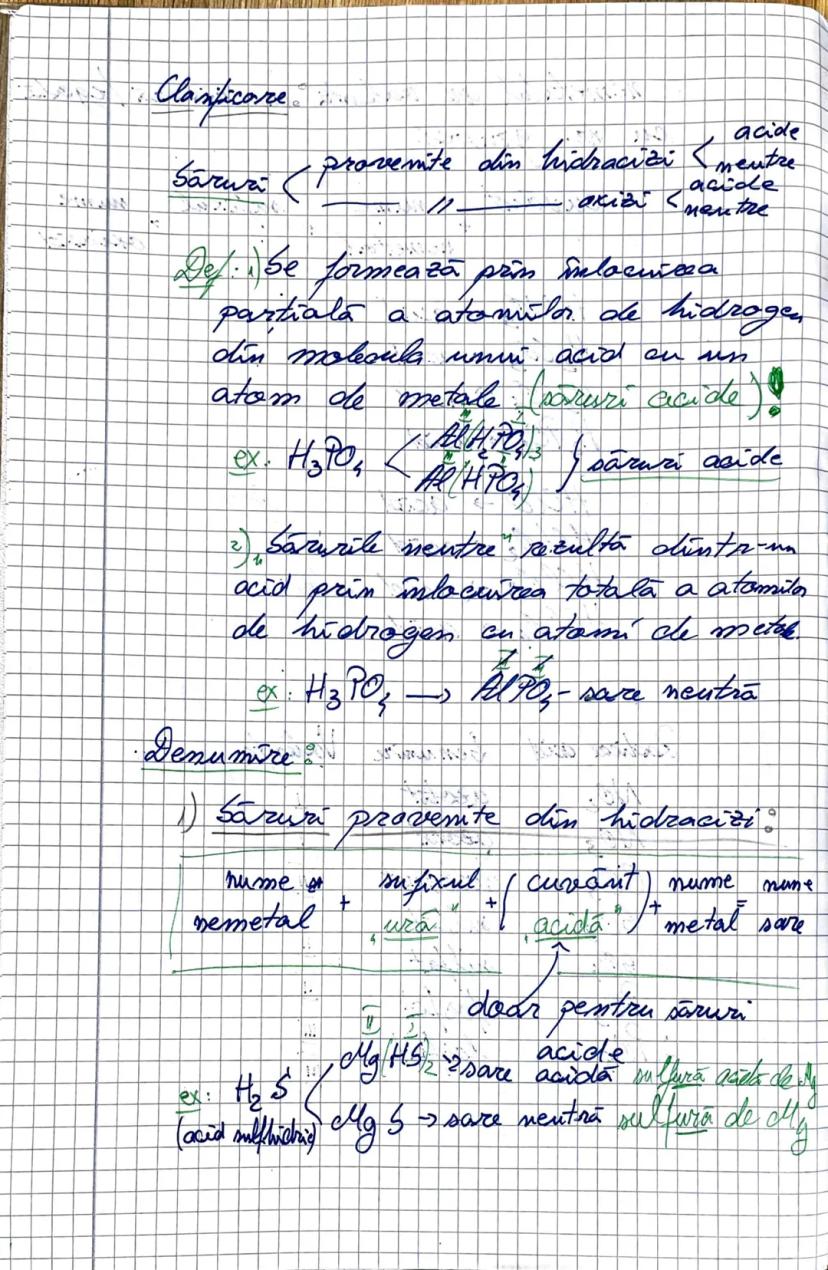 Clasificare:
Săruri < provenite din hidracizi < acide
neutre
——— // ——— oxizi < acide
neutre
Def: 1) Se formează prin înlocuirea
parțială a atomilor de hidrogen
din molecula unui acid cu un
atom de metale (săruri acide)!
ex: H₃PO₄ < Al(H₂PO₄)₃
Al(HPO₄) } săruri acide
2) „Sărurile neutre" rezultă dintr-un
acid prin înlocuirea totală a atomilor
de hidrogen cu atomi de metale.
ex: H₃PO₄ → AlPO₄ - sare neutră
Denumire:
1) Săruri provenite din hidracizi:
nume nemetal + sufixul „ură" + (cuvânt „acidă") + nume metal = nume sare
doar pentru săruri
acide
ex: H₂S < Mg(HS)₂ → sare acidă sulfură acidă de Mg
(acid sulfhidric) MgS → sare neutră sulfură de Mg